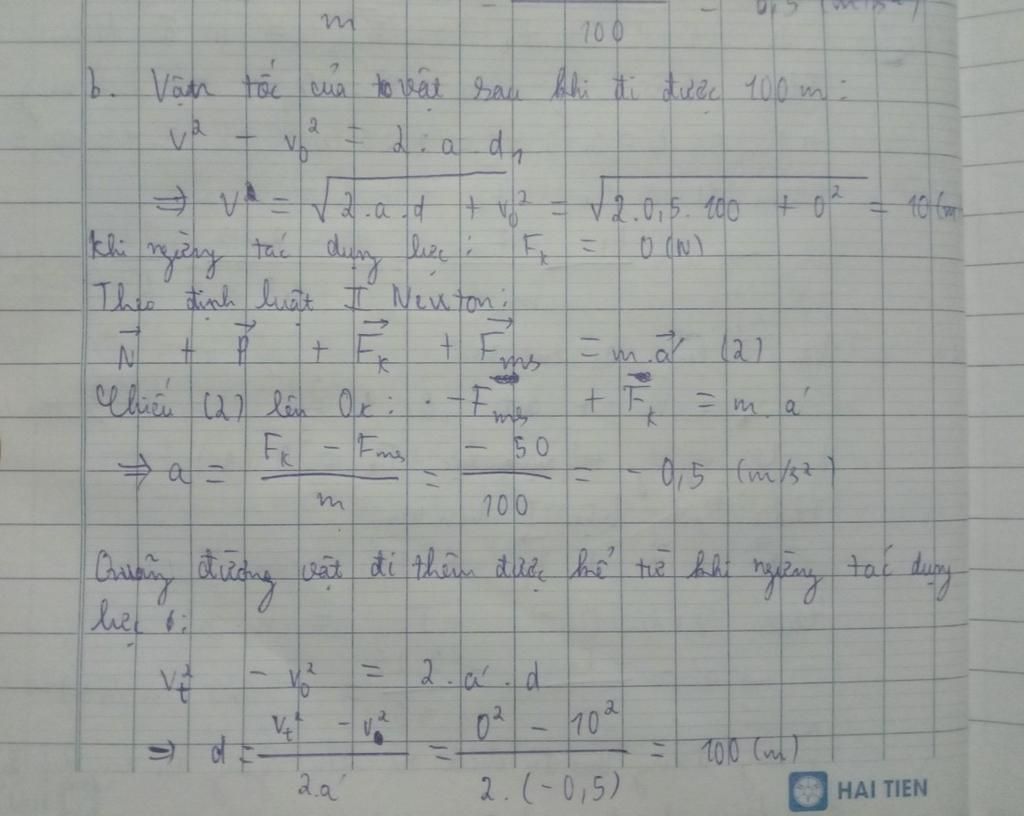 m 100 0,5 (m/s²)
b. Vận tốc của vật sau khi đi được 100 m:
v² - v₀² = 2 . a . d,
⇒ v = √(2.a.d + v₀²) = √(2.0,5.100 + 0²) = 10 (m
Khi ngừng tác dụng lực: Fₖ = 0 (N)
Theo định luật II Newton:
N⃗ + P⃗ + F⃗ₖ + F⃗ₘₛ = m.a⃗' (2)
Chiếu (2) lên Ox: -Fₘₛ + Fₖ = m.a'
⇒ a = (Fₖ - Fₘₛ)/m = (- 50)/100 = - 0,5 (m/s²)
Quãng đường vật đi thêm được kể từ khi ngừng tác dụng
lực:
vₜ² - v₀² = 2 . a' . d
⇒ d = (vₜ² - v₀²)/(2.a') = (0² - 10²)/(2.(-0,5)) = 100 (m)
HAI TIEN